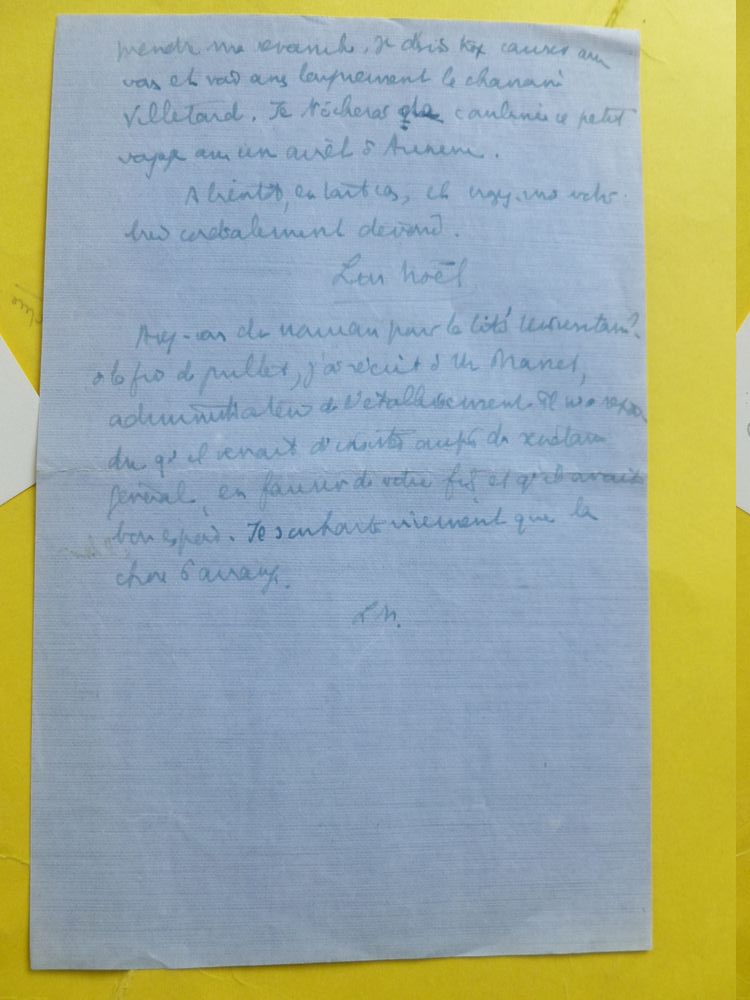 prendre ma revanche. Je dois
vous et voir longuement le chanoine
Villetard. Je tâcherai de combiner ce petit
voyage avec un arrêt à Auxerre.
A bientôt, en tout cas, et croyez-moi votre
très cordialement dévoué.
Léon Noël
Avez-vous du nouveau pour le
de juillet, j'ai écrit à M.
administrateur de l'établissement. Il m'a répon
du qu'il venait d'insister auprès du secrétaire
général, en faveur de votre fils et qu'il avait
bon espoir. Je souhaite vivement que la
chose s'arrange.
L N.